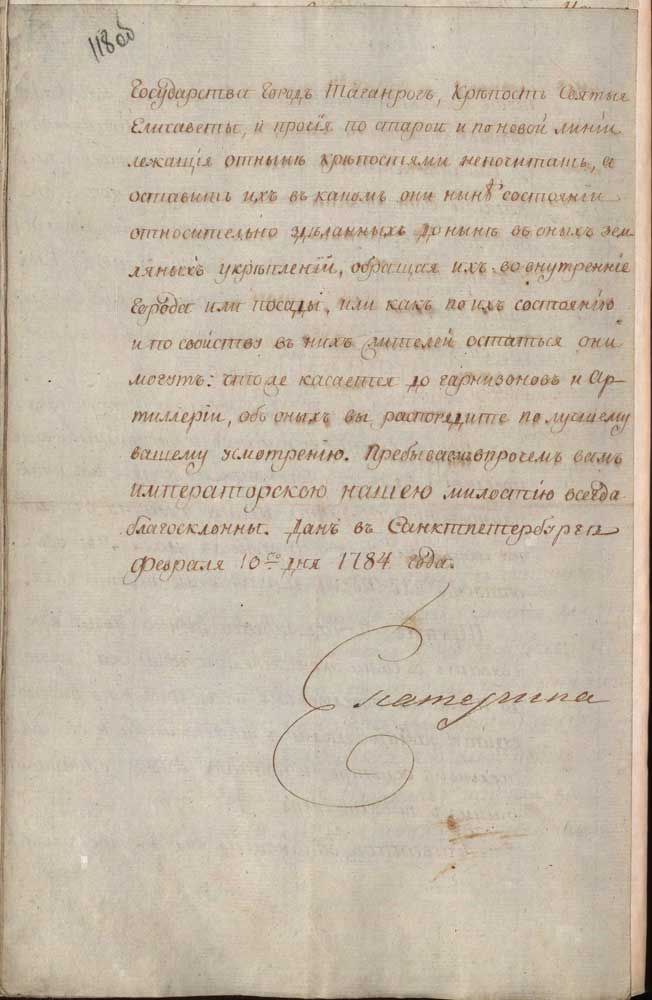 118об
Государства Городъ Таганрогъ, Крѣпость Святыя
Елисаветы, и прочія по старой и по новой линіи
лежащія отнынѣ крѣпостями непочитать, а
оставить ихъ въ какомъ они нынѣ состояніи
относительно зделанныхъ донынѣ въ оныхъ зем-
ляныхъ укрѣпленій, обращая ихъ во внутренніе
Города или посады, или какъ по ихъ состоянію
и по свойству въ нихъ жителей остаться они
могутъ: чтоже касается до гарнизоновъ и Ар-
тиллеріи, объ оныхъ вы распорядите по лучшему
вашему усмотренію. Пребываемъ впрочемъ вамъ
императорскою нашею милостію всегда
благосклонны. Данъ въ Санктпетербургѣ
Февраля 10го дня 1784 года.
Екатерина